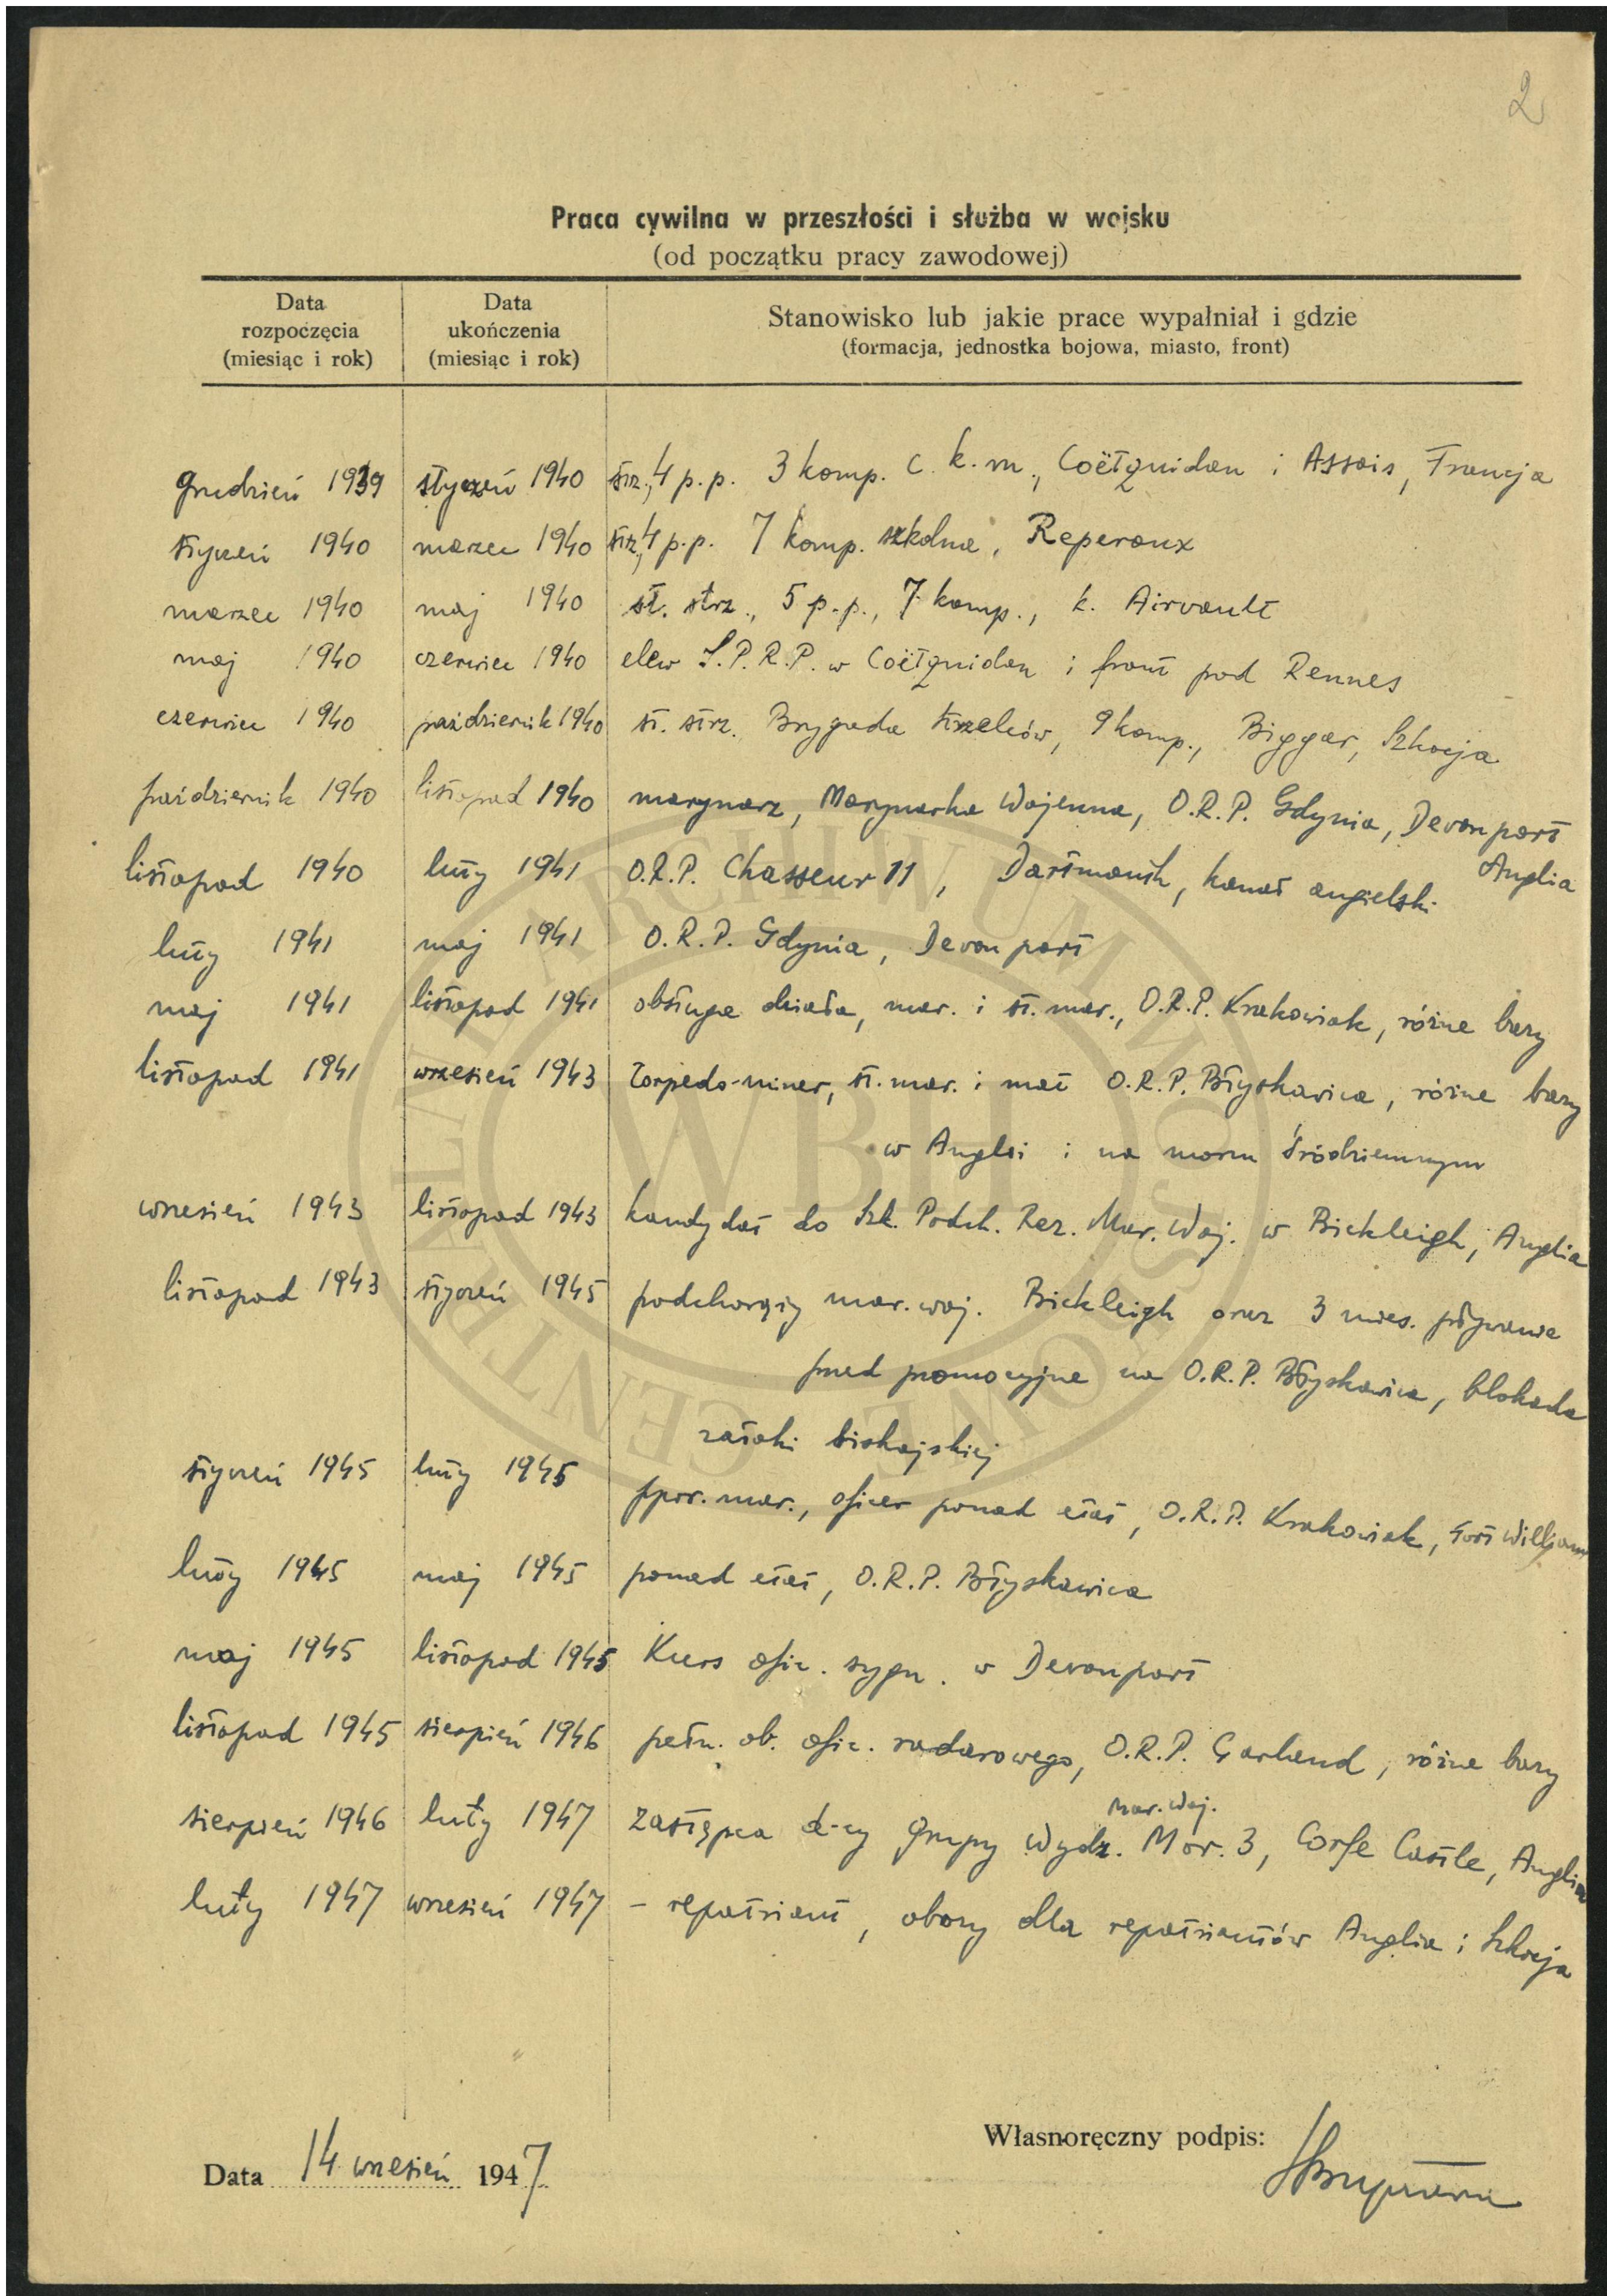 2
Praca cywilna w przeszłości i służba w wojsku
(od początku pracy zawodowej)
Data rozpoczęcia (miesiąc i rok) Data ukończenia (miesiąc i rok) Stanowisko lub jakie prace wypałniał i gdzie (formacja, jednostka bojowa, miasto, front)
grudzień 1939 styczeń 1940 strz., 4 p.p. 3 komp. c. k. m., Coëtquidan i Assais, Francja
styczeń 1940 marzec 1940 strz., 4 p.p. 7 komp. szkolna, Reperoux
marzec 1940 maj 1940 st. strz., 5 p.p., 7 komp., k. Airvault
maj 1940 czerwiec 1940 elew S.P.R.P. w Coëtquidan i front pod Rennes
czerwiec 1940 październik 1940 st. strz. Brygada Strzelców, 9 komp., Biggar, Szkocja
październik 1940 listopad 1940 marynarz, Marynarka Wojenna, O.R.P. Gdynia, Devonport
Anglia
listopad 1940 luty 1941 O.R.P. Chasseur 11, Dartmouth, kanał angielski
luty 1941 maj 1941 O.R.P. Gdynia, Devonport
maj 1941 listopad 1941 obsługa działa, mar. i st. mar., O.R.P. Krakowiak, różne bazy
listopad 1941 wrzesień 1943 torpedo-miner, st. mar. i mat O.R.P. Błyskawica, różne bazy
w Anglii i na morzu Śródziemnym
wrzesień 1943 listopad 1943 kandydat do Szk. Podch. Rez. Mar. Woj. w Bickleigh, Anglia
listopad 1943 styczeń 1945 podchorąży mar. woj. Bickleigh oraz 3 mies. pływanie
przed promocyjne na O.R.P. Błyskawica, blokada
zatoki biskajskiej
styczeń 1945 luty 1945 ppor. mar., oficer ponad etat, O.R.P. Krakowiak, Fort William
luty 1945 maj 1945 ponad etat, O.R.P. Błyskawica
maj 1945 listopad 1945 Kurs ofic. sygn. w Devonport
listopad 1945 sierpień 1946 pełn. ob. ofic. radarowego, O.R.P. Garland, różne bazy
Mar. Woj.
sierpień 1946 luty 1947 Zastępca d-cy grupy Wydz. Mor. 3, Corfe Castle, Anglia
luty 1947 wrzesień 1947 - repatriant, obozy dla repatriantów Anglia i Szkocja
Własnoręczny podpis:
Data 14 wrzesień 1947
ARCHIWUM WOJSKOWE
CENTRALNE
WBH